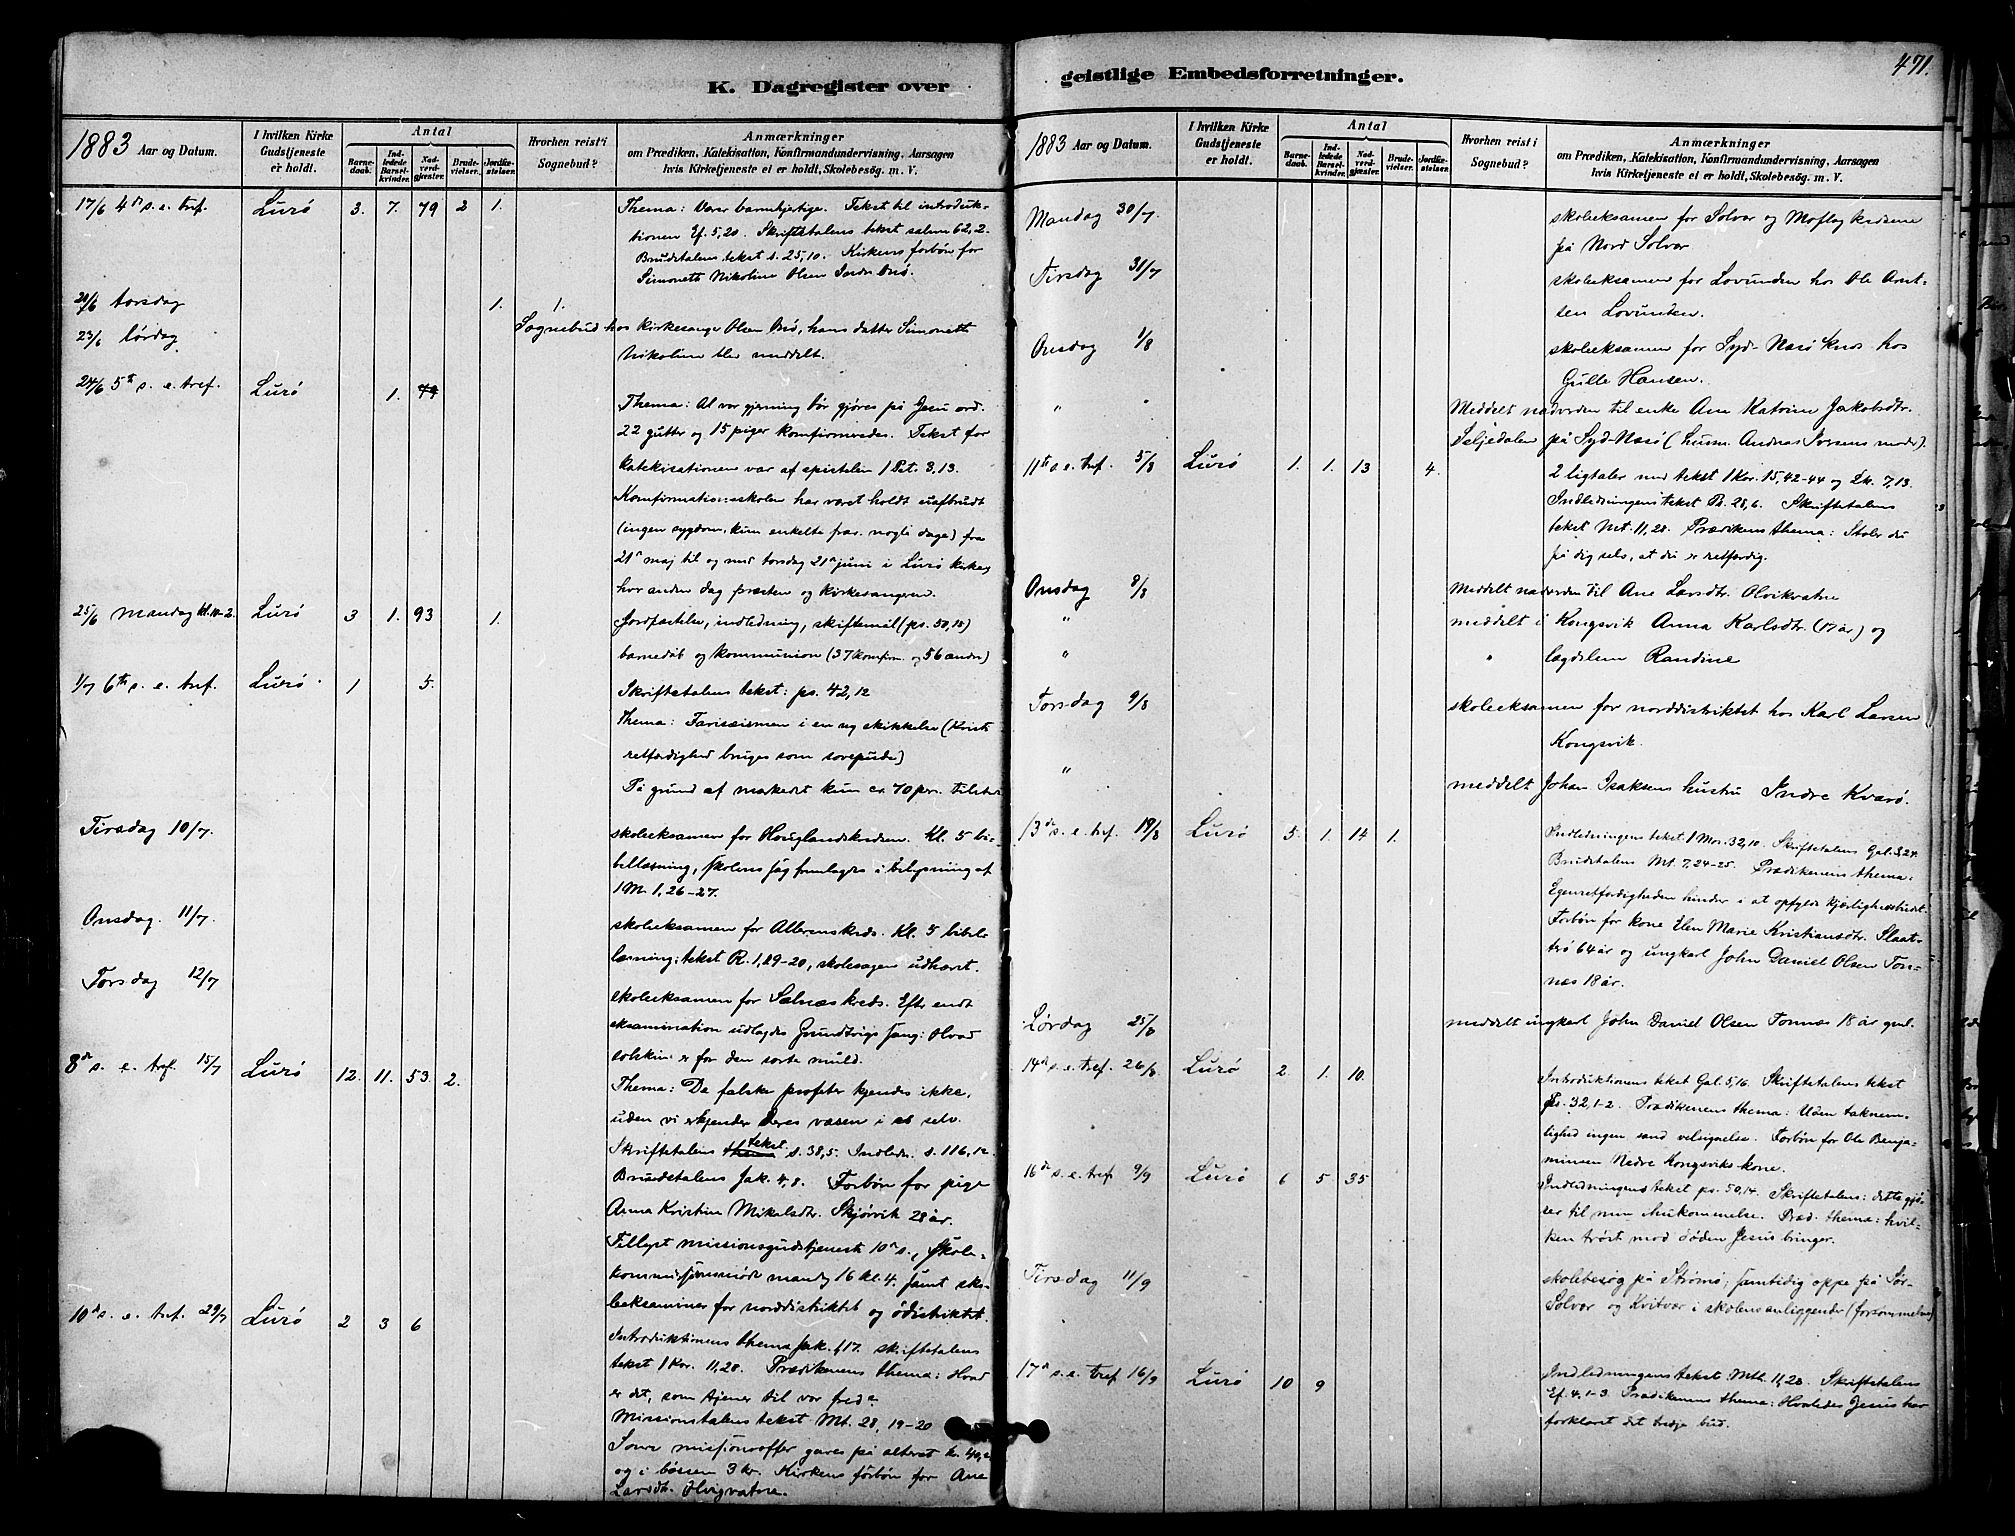 K. Dagregister over
1883 Aar og Datum.
I hvilken Kirke Gudstjeneste er holdt.
Antal
Barnedaab.
Indledede Barselkvinder.
Nadverdgjæster.
Brudevielser.
Jordfæstelser.
Hvorhen reist i Sognebud?
Anmærkninger
om Prædiken, Katekisation, Konfirmandundervisning, Aarsagen
hvis Kirketjeneste ei er holdt, Skolebesøg. m. V.
17/6 4de s. e. tref. Lurö 3. 7. 79 2 1. Thema: Værer barmhjertige. Tekst til introduk-
tionen Ef. 5,20. Skriftetalens tekst salme 62,2.
Brudetalens tekst s. 25,10. Kirkens forbön for
Simonette Nikoline Olsen Indre Onö.
21/6 torsdag 1. 1.
23/6 lördag Sognebud hos kirkesanger Olsen Onö, hans datter Simonette
Nikoline blev meddelt.
24/6 5te s. e. tref. Lurö 1. 44
Thema: Al vor gjerning bör gjöres på Jesu ord.
22 gutter og 15 piger konfirmeredes. Tekst for
katekisationen var af epistelen 1 Pet. 3,13.
Konfirmationsskolen har været holdt uafbrudt
(ingen sygdom, kun enkelte frav. nogle dage) fra
21de maj til og med torsdag 21de juni i Lurö kirke,
hver anden dag præsten og kirkesangeren.
25/6 Mandag kl. 10-2. Lurö 3 1. 93 1. Jordfæstelse, indledning, skiftemål (ps. 50,15)
barnedöb og kommunion (37 konfirm. og 56 andre)
1/7 6te s. e. tref. Lurö 1 5. Skriftetalens tekst: ps. 42,12
Thema: Farisæismen i en ny skikkelse (Kristi
retfærdighed bruges som sovepude)
På grund af markedet kun ca. 70 pers. tilstede
Tirsdag 10/7. skoleeksamen for Houglandskredsen. Kl. 5 bi-
bellæsning, skolens sag fremlagdes i belysning af
1 M. 1, 26-27.
Onsdag. 11/7. skoleeksamen for Alderenskreds. Kl. 5 bibel-
læsning; tekst R. 1, 19-20, skolesagen udhævet.
Torsdag 12/7 skoleeksamen for Selnæs kreds. Efter endt
eksamination udlagdes Grundtvigs sang: Hvad
solskin er for den sorte muld.
8de s. e. tref. 15/7 Lurö 12. 11. 53. 2.
Thema: De falske profeter kjendes ikke,
uden vi erkjender deres væsen i os selv.
Skriftetalens thema tekst s. 38,5. Indledn. s. 116,12.
Brudetalens Jak. 4,8. Forbön for pige
Anna Kristine Mikalsdtr. Skjörvik 28 år.
Tillyst missionsgudstjeneste 10de s., skole-
kommissionsmöde mandag 16 kl. 4. samt sko-
leeksaminer for norddistriktet og ödistriktet.
10de s. e. tref. 29/7 Lurö 2 3 6
Introduktionens thema Jak. 1,17. skriftetalens
tekst 1 Kor. 11,28. Prædikenens thema: Hvad
er det, som tjener til vor fred?
Missionstalens tekst Mt. 28, 19-20
gaves på alteret kr. 40,
og i bössen 3 kr. Kirkens förbön for Ane
Larsdtr. Olvigvatne.
geistlige Embedsforretninger.
471.
1883 Aar og Datum.
I hvilken Kirke Gudstjeneste er holdt.
Antal
Barnedaab.
Indledede Barselkvinder.
Nadverdgjæster.
Brudevielser.
Jordfæstelser.
Hvorhen reist i Sognebud?
Anmærkninger
om Prædiken, Katekisation, Konfirmandundervisning, Aarsagen
hvis Kirketjeneste ei er holdt, Skolebesøg. m. V.
Mandag 30/7. skoleeksamen for Solvær og Moflag kredsene
på Nord Solvær
Tirsdag 31/7 skoleeksamen for Lovunden hos Ole Arnt-
sen Lovunden.
Onsdag 1/8 skoleeksamen for Syd-Nesö kreds hos
Gulle Hansen.
" Meddelt nadverden til enke Ane Katrine Jakobsdtr.
Seljedalen på Syd-Nesö (husm. Andreas Iversens moder).
11te s. e. tref. 5/8 Lurö 1. 1. 13 4. 2 ligtaler med tekst 1 Kor. 15, 42-44 og Lk. 7,13.
Indledningens tekst Ps. 28,6. Skriftetalens
tekst Mt. 11,28. Prædikens thema: Stoler du
på dig selv, at du er retfærdig.
Onsdag 8/8 Meddelt nadverden til Ane Larsdtr. Olvikvatne
" meddelt i Kongsvik Anna Karlsdtr. (17 år) og
" " lægdslem Randine
Torsdag 9/8 skoleeksamen for norddistriktet hos Karl Larsen
Kongsvik.
" meddelt Johan Isaksens hustru Indre Kvarö.
13de s. e. tref. 19/8 Lurö 5. 1. 14 1. Indledningens tekst: 1 Mos. 32,10. Skriftetalens Gal. 3,24.
Brudetalens Mt. 7, 24-25. Prædikenens thema:
Egenretfærdigheden hinder i at opfylde kjærlighedsbudet.
Forbön for kone Elen Marie Kristiansdtr. Slaat-
terö 64 år og ungkarl John Daniel Olsen Ton-
næs 18 år.
Lördag 25/8 meddelt ungkarl John Daniel Olsen Tonnæs 18 år gml.
14de s. e. tref. 26/8. Lurö 2. 1. 10. Introduktionens tekst Gal. 5,16. Skriftetalens tekst
Ps. 32, 1-2. Prædikenens thema: Uden taknem-
lighed ingen sand velsignelse. Forbön for Ole Benja-
minsen Nedre Kongsviks kone.
16de s. e. tref. 9/9 Lurö 6 5 35 Indledningens tekst ps. 50,14. Skriftetalens: dette gjö-
rer til min ihukommelse. Præd. thema: hvil-
ken tröst mod döden Jesus bringer.
Tirsdag 11/9 skolebesög på Strömö; samtidig oppe på Sör-
Solvær og Kvitvær i skolens anliggender (forsömmelser)
17de s. e. tref 16/9 Lurö 10 9 Indledningens tekst: Mth. 11,28. Skriftetalens
Ef. 4, 1-3. Prædikenens thema: Hvoledes Jesus har
forklaret det tredje bud.